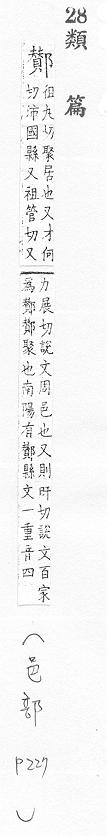 28類篇
酇
徂丸切聚居也又才何
切沛國縣又祖管切又
力展切說文周邑也又則旰切說文百家
為酇酇聚也南陽有酇縣文一重音四
（邑部 P227）